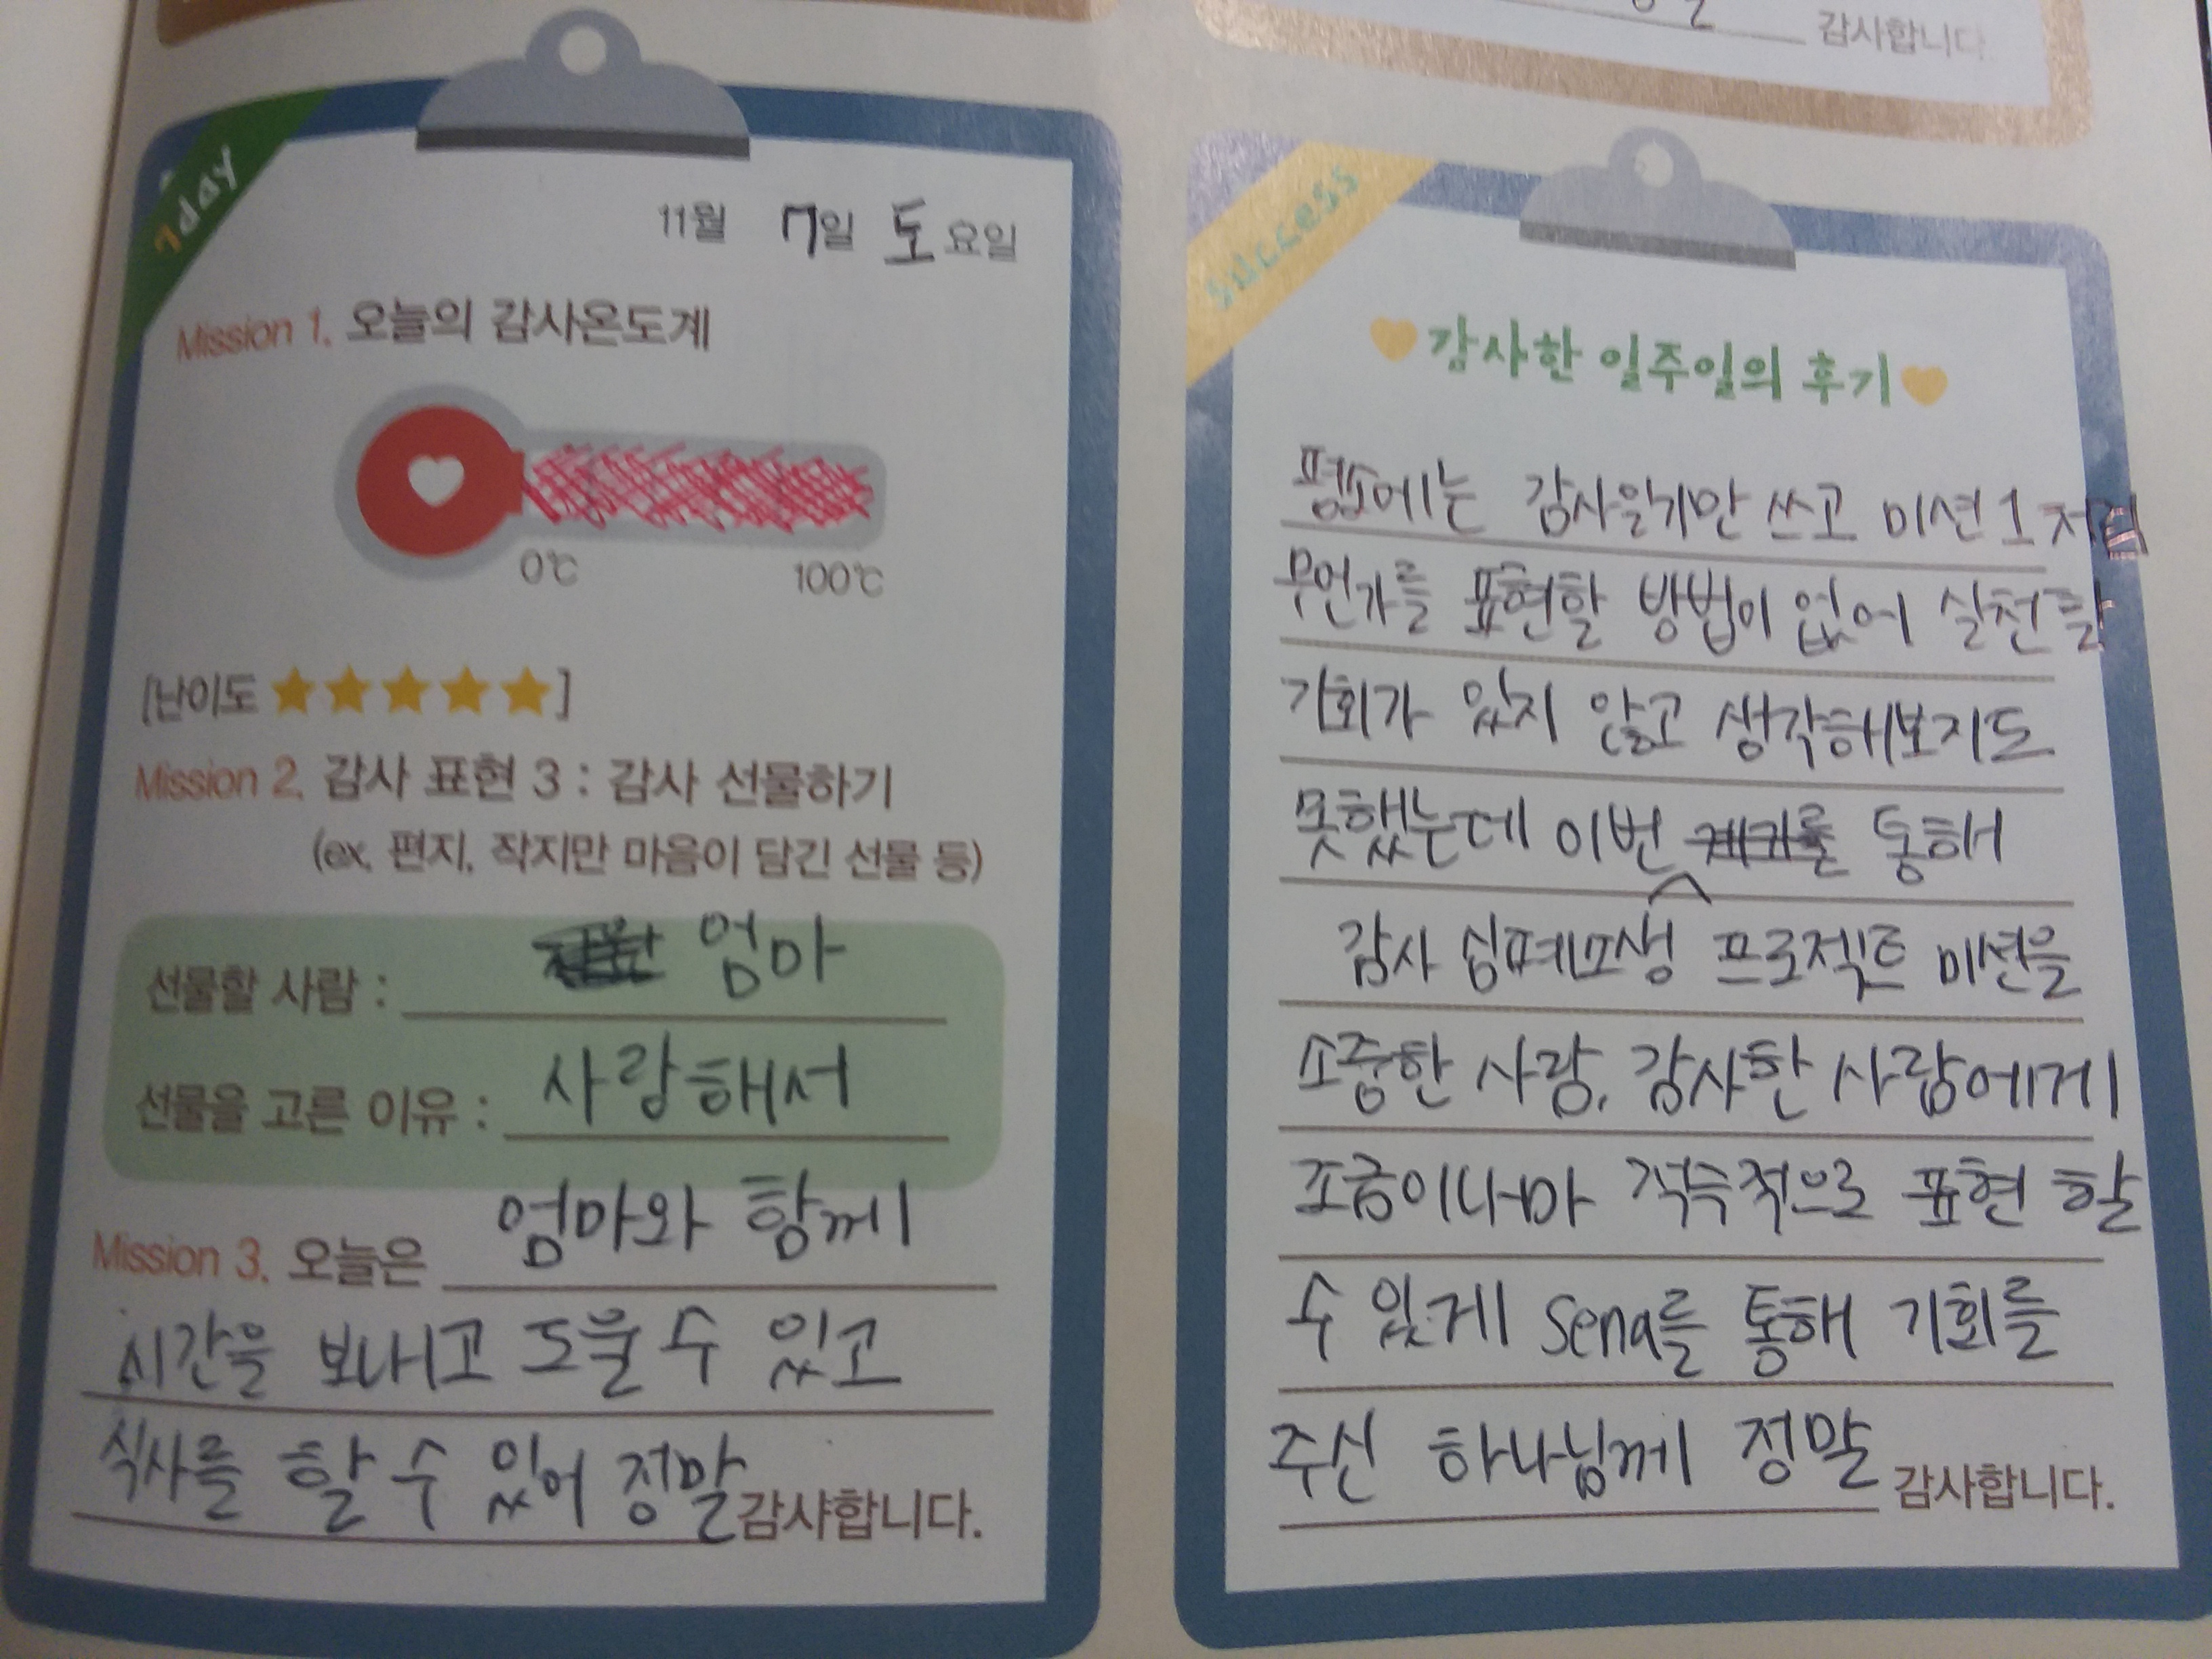 감사합니다
7day
11월 7일 토요일
Mission 1. 오늘의 감사온도계
0℃ 100℃
[난이도 ★★★★★]
Mission 2. 감사 표현 3 : 감사 선물하기
(ex. 편지, 작지만 마음이 담긴 선물 등)
선물할 사람 : 엄마
선물을 고른 이유 : 사랑해서
Mission 3. 오늘은 엄마와 함께
시간을 보내고 도울 수 있고
식사를 할 수 있어 정말 감사합니다.
success
감사한 일주일의 후기
평소에는 감사일기만 쓰고 미션 1 처럼
무언가를 표현할 방법이 없어 실천할
기회가 있지 않고 생각해보지도
못했는데 이번 통해
감사 프로젝트 미션을
소중한 사람, 감사한 사람에게
조금이나마 적극적으로 표현 할
수 있게 Sena를 통해 기회를
주신 하나님께 정말 감사합니다.